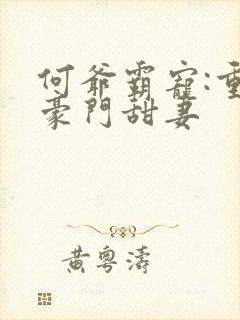 何爷霸寵:重
豪門甜妻
黃粵濤